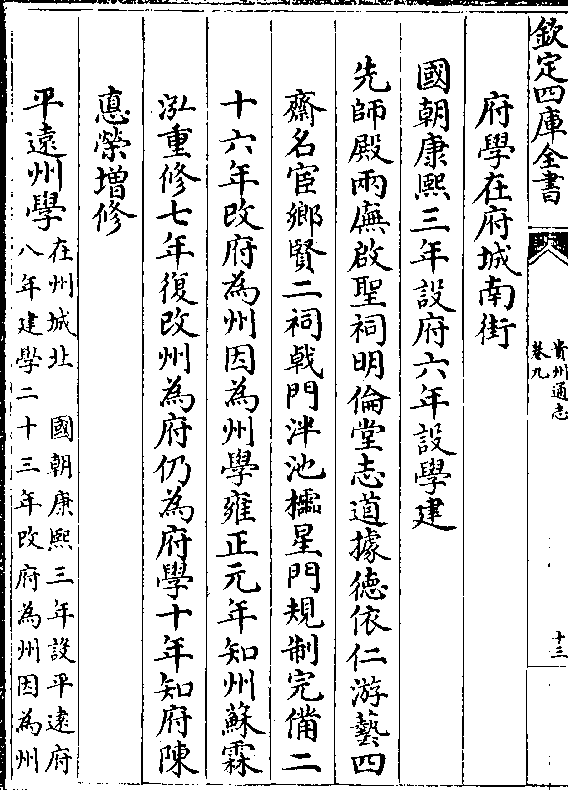 欽定四庫全書
貴州通志
卷九
十三
府學在府城南街
國朝康熙三年設府六年設學建
先師殿兩廡啟聖祠明倫堂志道據德依仁游藝四
齋名宦鄉賢二祠㦸門泮池櫺星門規制完備二
十六年改府為州因為州學雍正元年知州蘇霖
泓重修七年復改州為府仍為府學十年知府陳
悳榮增修
平遠州學在州城北 國朝康熙三年設平逺府
八年建學二十三年改府為州因為州